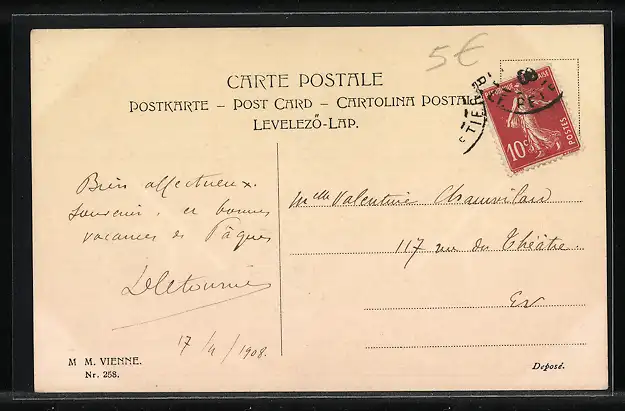 5€
CARTE POSTALE
POSTKARTE – POST CARD – CARTOLINA POSTALE
LEVELEZŐ-LAP.
POSTES
10c
Bien affectueux
souvenir, et bonnes
vacances de Pâques
DLetournier
17/4/1908.
Mlle Valentine
117 rue du Théâtre
Ev
M M. VIENNE.
Nr. 258.
Deposé.